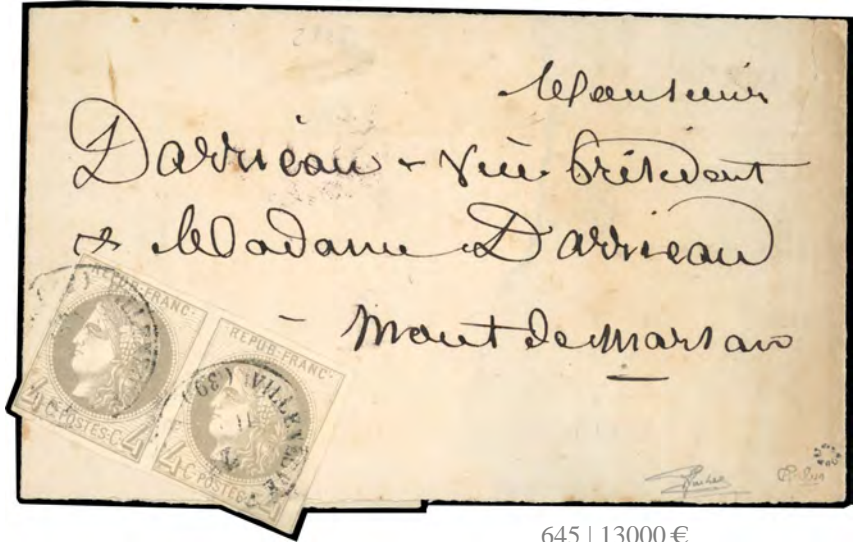 Monsieur
Darrieau - Vice Président
& Madame Darrieau
- Mont de Marsan
REPUB·FRANC·
4 C·POSTES·C 4
REPUB·FRANC·
4 C·POSTES·C 4
(39) VILLENEUVE
645 | 13000 €